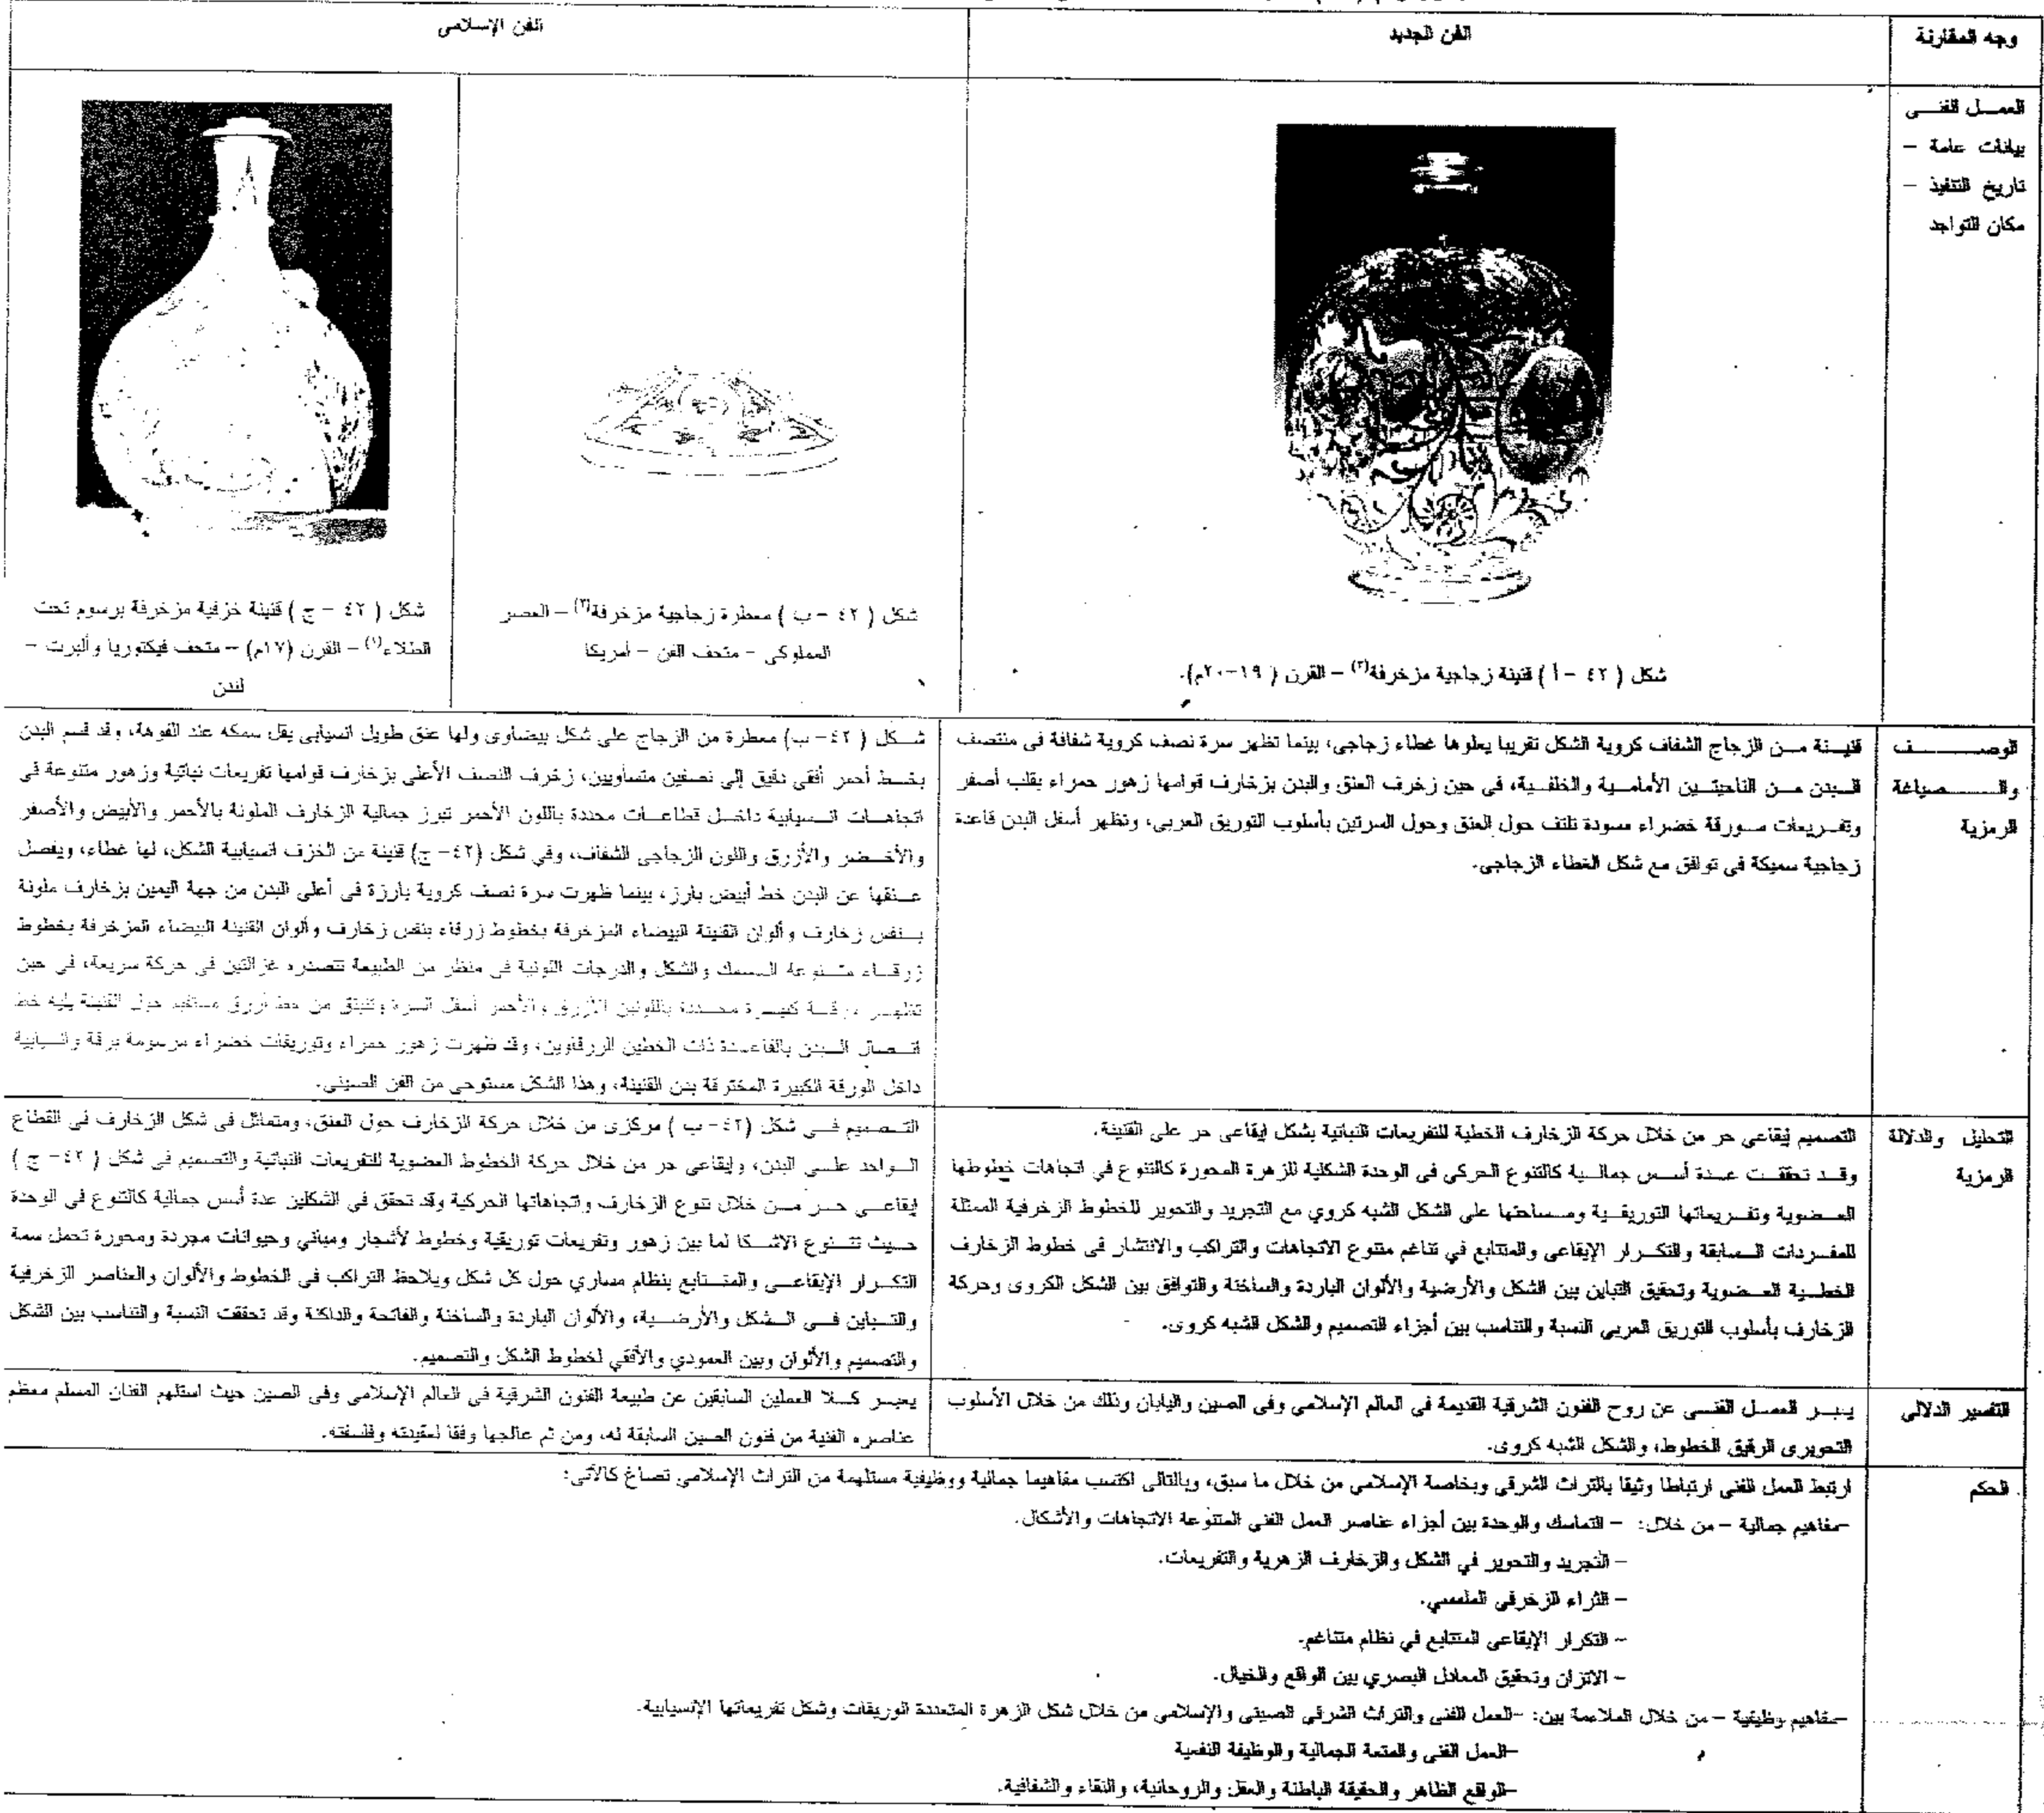 وجه المقارنة
الفن الجديد
الفن الإسلامى
العمل الفنى
بيانات عامة –
تاريخ التنفيذ –
مكان التواجد
شكل ( ٤٢ - أ ) قنينة زجاجية مزخرفة(٢) – القرن ( ١٩-٢٠م).
شكل ( ٤٢ - ب ) معطرة زجاجية مزخرفة(٣) – العصر
المملوكى – متحف الفن – أمريكا
شكل ( ٤٢ - ج ) قنينة خزفية مزخرفة برسوم تحت
الطلاء(١) – القرن (١٧م) – متحف فيكتوريا وألبرت –
لندن
الوصف
والصياغة
الرمزية
قنينة من الزجاج الشفاف كروية الشكل تقريبا يعلوها غطاء زجاجى، بينما تظهر سرة نصف كروية شفافة فى منتصف
البدن من الناحيتين الأمامية والخلفية، فى حين زخرف العنق والبدن بزخارف قوامها زهور حمراء بقلب أصفر
وتفريعات مورقة خضراء مسودة تلتف حول العنق وحول السرتين بأسلوب التوريق العربى، وتظهر أسفل البدن قاعدة
زجاجية سميكة فى توافق مع شكل الغطاء الزجاجى.
شكل ( ٤٢- ب) معطرة من الزجاج على شكل بيضاوى ولها عنق طويل انسيابى يقل سمكه عند الفوهة، وقد قسم البدن
بخط أحمر أفقى دقيق إلى نصفين متساويين، زخرف النصف الأعلى بزخارف قوامها تفريعات نباتية وزهور متنوعة فى
اتجاهات انسيابية داخل قطاعات محددة باللون الأحمر تبرز جمالية الزخارف الملونة بالأحمر والأبيض والأصفر
والأخضر والأزرق واللون الزجاجى الشفاف، وفي شكل (٤٢- ج) قنينة من الخزف انسيابية الشكل، لها غطاء، ويفصل
عنقها عن البدن خط أبيض بارز، بينما ظهرت سرة نصف كروية بارزة فى أعلى البدن من جهة اليمين بزخارف ملونة
بنفس زخارف وألوان القنينة البيضاء المزخرفة بخطوط زرقاء بنفس زخارف وألوان القنينة البيضاء المزخرفة بخطوط
زرقاء متنوعة السمك والشكل والدرجات اللونية فى منظر من الطبيعة تتصدره غزالتين فى حركة سريعة، فى حين
تظهر ورقة كبيرة محددة باللونين الأزرق والأحمر أسفل السرة وتنبثق من خط أزرق حول القنينة يليه خط
اتصال البدن بالقاعدة ذات الخطين الزرقاوين، وقد ظهرت زهور حمراء وتوريقات خضراء مرسومة برقة وانسيابية
داخل الورقة الكبيرة المخترقة بدن القنينة، وهذا الشكل مستوحى من الفن الصينى.
التحليل والدلالة
الرمزية
التصميم إيقاعي حر من خلال حركة الزخارف الخطية للتفريعات النباتية بشكل إيقاعى حر على القنينة.
وقد تحققت عدة أسس جمالية كالتنوع الحركى فى الوحدة الشكلية للزهرة المحورة كالتنوع في اتجاهات خطوطها
العضوية وتفريعاتها التوريقية ومساحتها على الشكل الشبه كروي مع التجريد والتحوير للخطوط الزخرفية الممثلة
للمفردات السابقة والتكرار الإيقاعى والمتتابع في تناغم متنوع الاتجاهات والتراكب والانتشار فى خطوط الزخارف
الخطية العضوية وتحقيق التباين بين الشكل والأرضية والألوان الباردة والساخنة والتوافق بين الشكل الكروى وحركة
الزخارف بأسلوب التوريق العربى النسبة والتناسب بين أجزاء التصميم والشكل الشبه كروى.
التصميم فى شكل (٤٢- ب ) مركزى من خلال حركة الزخارف حول العنق، ومتماثل فى شكل الزخارف فى القطاع
الواحد على البدن، وإيقاعى حر من خلال حركة الخطوط العضوية للتفريعات النباتية والتصميم في شكل ( ٤٢- ج )
إيقاعى حر من خلال تنوع الزخارف واتجاهاتها الحركية وقد تحقق في الشكلين عدة أسس جمالية كالتنوع في الوحدة
حيث تتنوع الاشكا لما بين زهور وتفريعات توريقية وخطوط لأشجار ومباني وحيوانات مجردة ومحورة تحمل سمة
التكرار الإيقاعى والمتتابع بنظام مساري حول كل شكل ويلاحظ التراكب فى الخطوط والألوان والعناصر الزخرفية
والتباين فى الشكل والأرضية، والألوان الباردة والساخنة والفاتحة والداكنة وقد تحققت النسبة والتناسب بين الشكل
والتصميم والألوان وبين العمودي والأفقي لخطوط الشكل والتصميم.
التفسير الدلالى
يعبر العمل الفنى عن روح الفنون الشرقية القديمة فى العالم الإسلامى وفى الصين واليابان وذلك من خلال الأسلوب
التحويرى الرقيق الخطوط، والشكل الشبه كروى.
يعبر كلا العملين السابقين عن طبيعة الفنون الشرقية فى العالم الإسلامى وفى الصين حيث استلهم الفنان المسلم معظم
عناصره الفنية من فنون الصين السابقة له، ومن ثم عالجها وفقا لعقيدته وفلسفته.
الحكم
ارتبط العمل الفنى ارتباطا وثيقا بالتراث الشرقي وبخاصة الإسلامي من خلال ما سبق، وبالتالى اكتسب مفاهيما جمالية ووظيفية مستلهمة من التراث الإسلامي تصاغ كالآتى:
-مفاهيم جمالية – من خلال: – التماسك والوحدة بين أجزاء عناصر العمل الفنى المتنوعة الاتجاهات والأشكال.
– التجريد والتحوير في الشكل والزخارف الزهرية والتفريعات.
– الثراء الزخرفي الملمسي.
– التكرار الإيقاعى المتتابع في نظام متناغم.
– الاتزان وتحقيق المعادل البصري بين الواقع والخيال.
-مفاهيم وظيفية – من خلال الملاءمة بين: -العمل الفنى والتراث الشرقى الصينى والإسلامى من خلال شكل الزهرة المتعددة الوريقات وشكل تفريعاتها الإنسيابية.
-العمل الفنى والمتعة الجمالية والوظيفة النفسية
-الواقع الظاهر والحقيقة الباطنة والعقل والروحانية، والنقاء والشفافية.